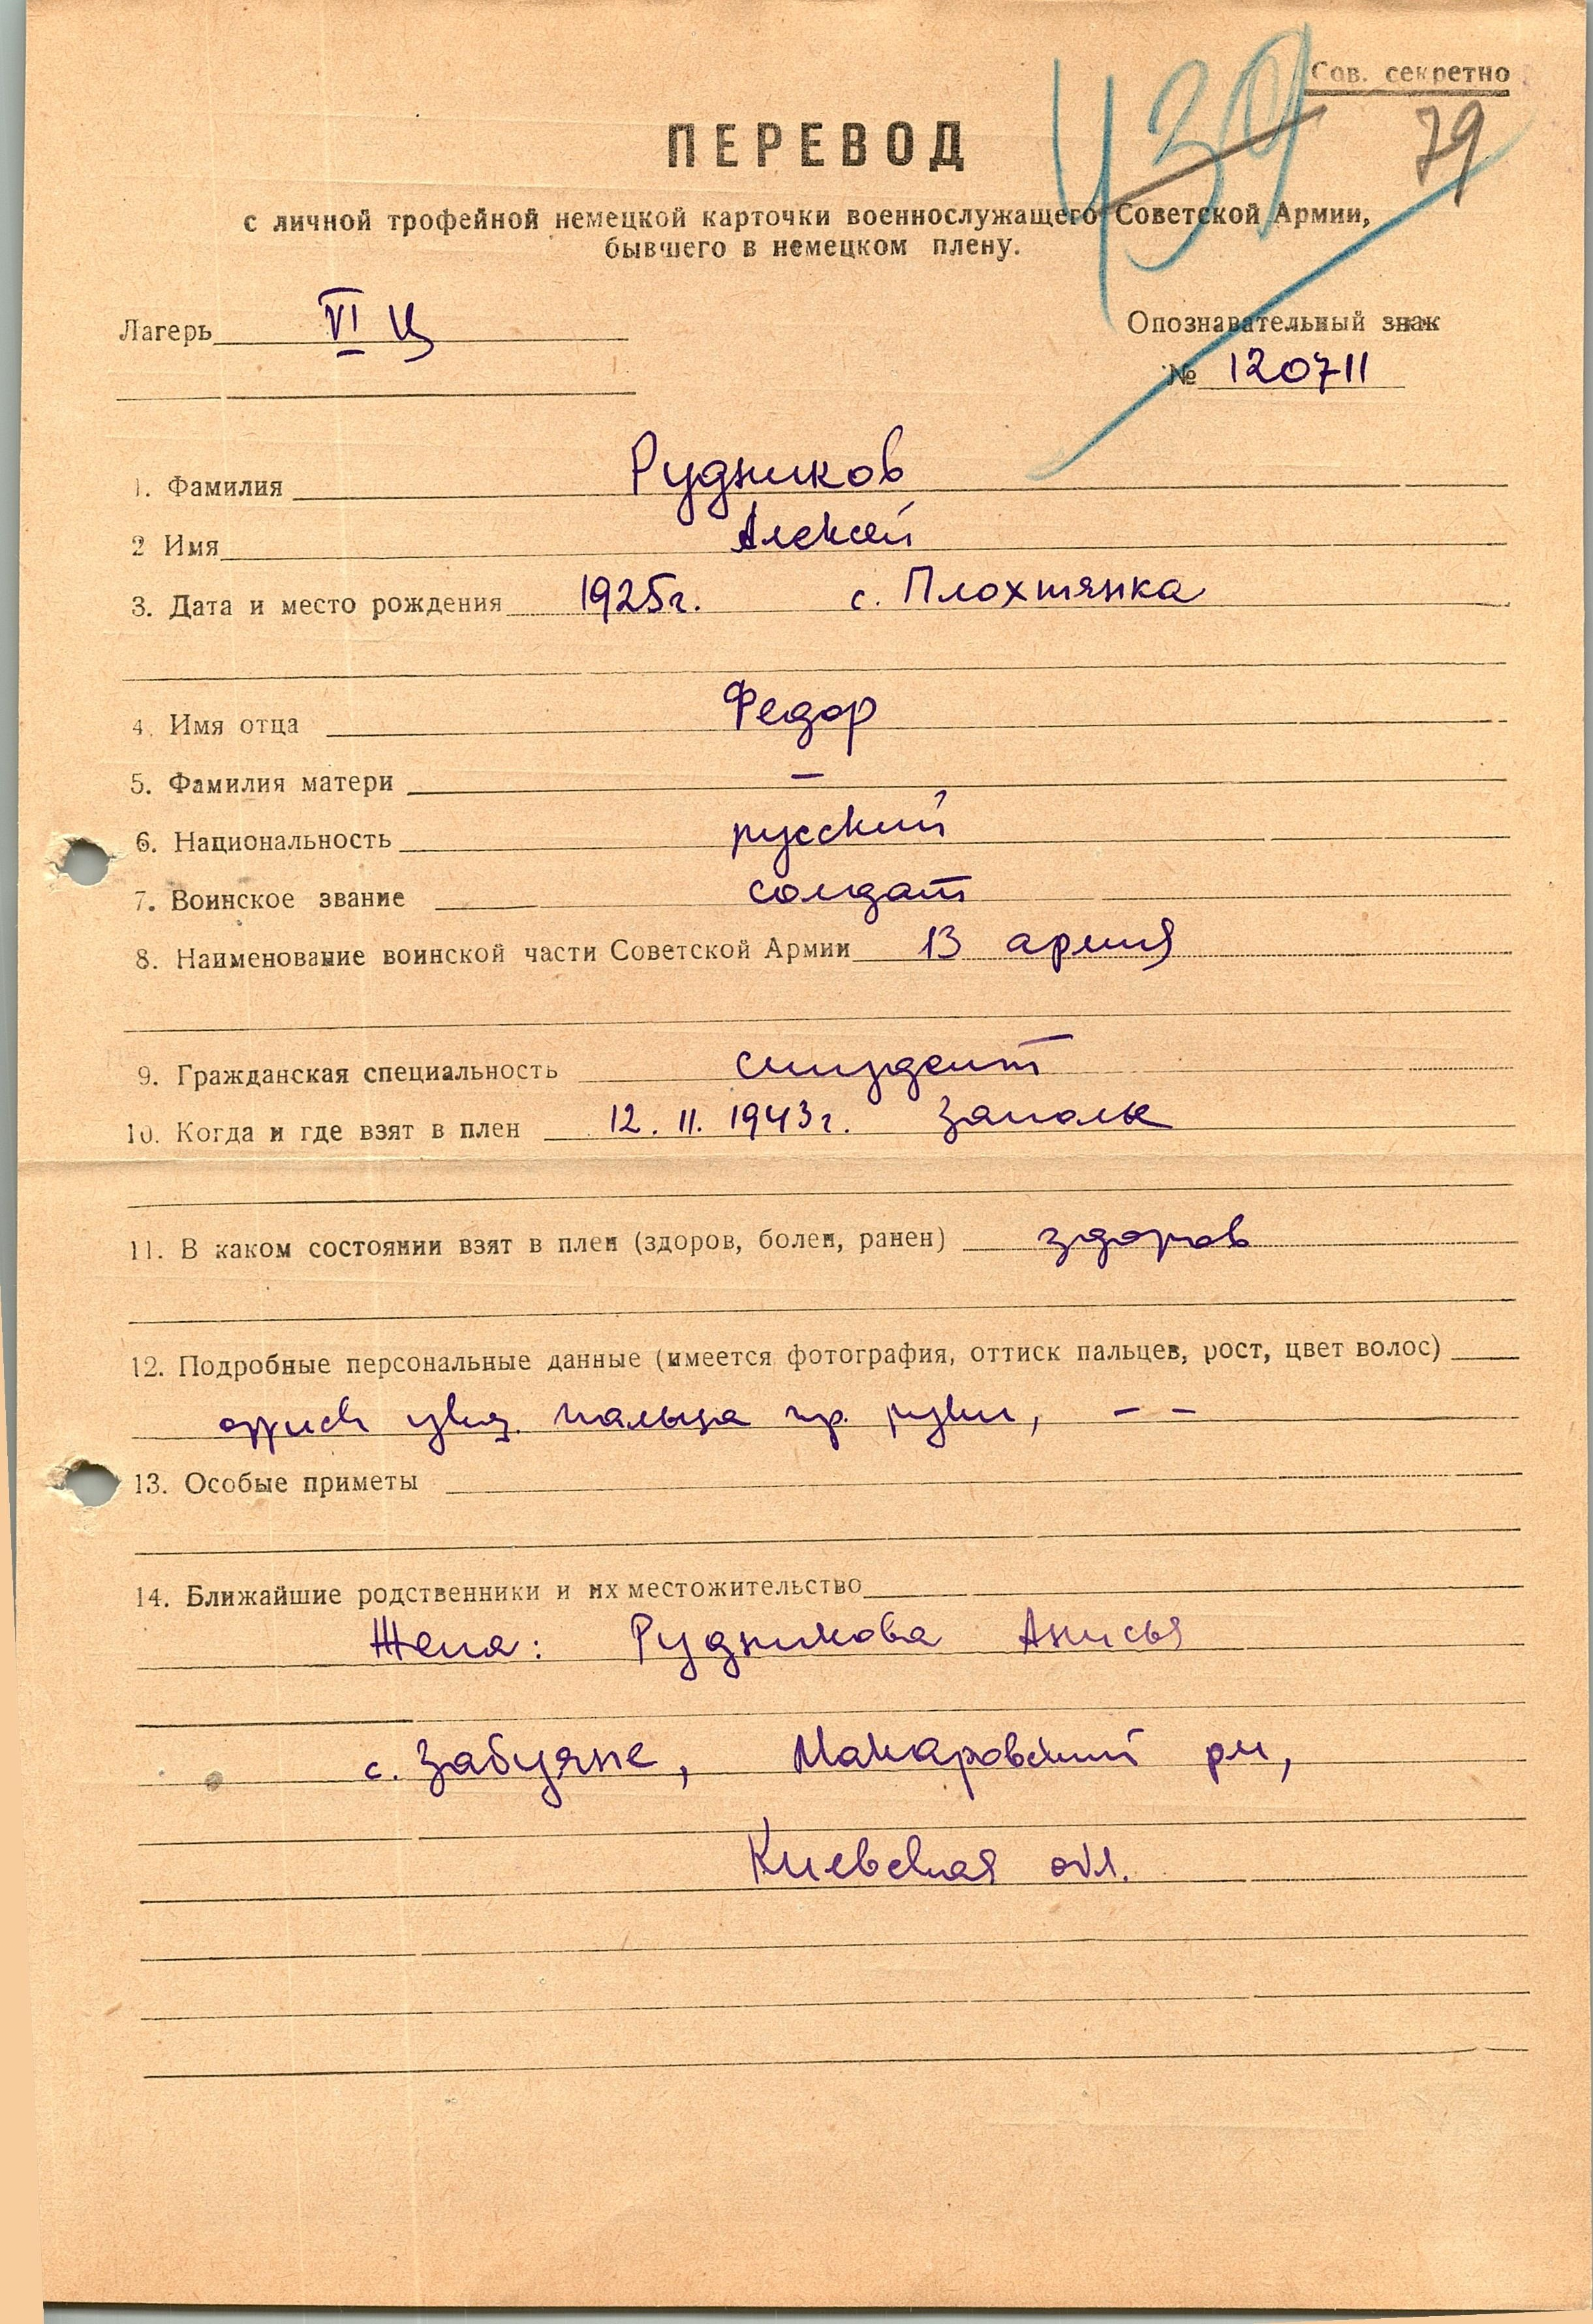 Сов. секретно
439 79
ПЕРЕВОД
с личной трофейной немецкой карточки военнослужащего Советской Армии,
бывшего в немецком плену.
Лагерь VI Ц
Опознавательный знак
№ 120711
1. Фамилия Рудников
2 Имя Алексей
3. Дата и место рождения 1925г. с. Плохтянка
4. Имя отца Федор
5. Фамилия матери —
6. Национальность русский
7. Воинское звание солдат
8. Наименование воинской части Советской Армии 13 армия
9. Гражданская специальность студент
10. Когда и где взят в плен 12. 11. 1943г.
11. В каком состоянии взят в плен (здоров, болен, ранен) здоров
12. Подробные персональные данные (имеется фотография, оттиск пальцев, рост, цвет волос)
пальца пр. руки, — —
13. Особые приметы
14. Ближайшие родственники и их местожительство
Жена: Рудникова Анисья
с. Забуяне, Макаровский рн,
Киевская обл.